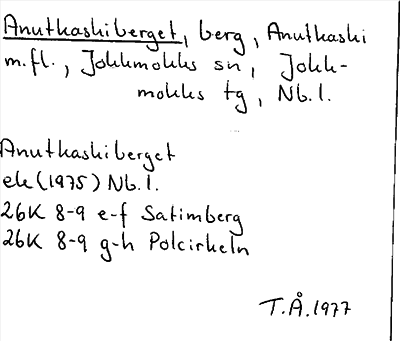 Anutkaskiberget, berg, Anutkaski
m.fl., Jokkmokks sn, Jokk-
mokks tg, Nb.l.
Anutkaskiberget
ek (1975) Nb.l.
26K 8-9 e-f Satimberg
26K 8-9 g-h Polcirkeln
T.Å.1977